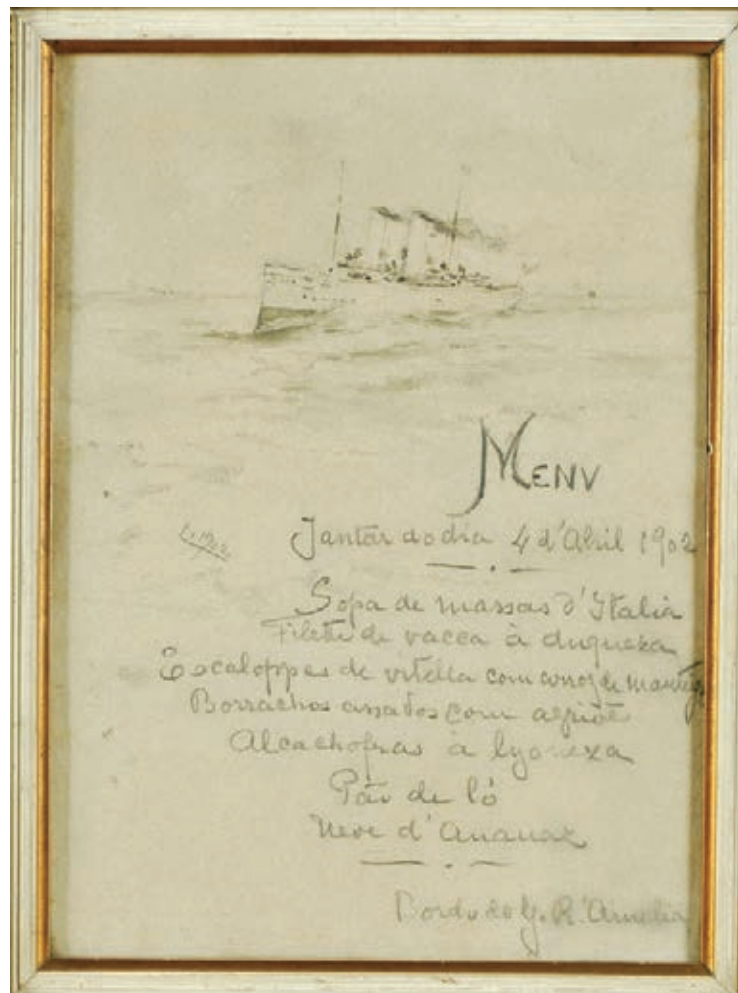 MENU
Jantar do dia 4 d'Abril 1902
Sopa de massas d'Italia
Filete de vacca à duqueza
Escaloppes de vitella com arroz de manteiga
Borrachos assados com agriões
Alcachofras à lyoneza
Pão de ló
Neve d'Ananaz
Bordo do Y. R. Amelia